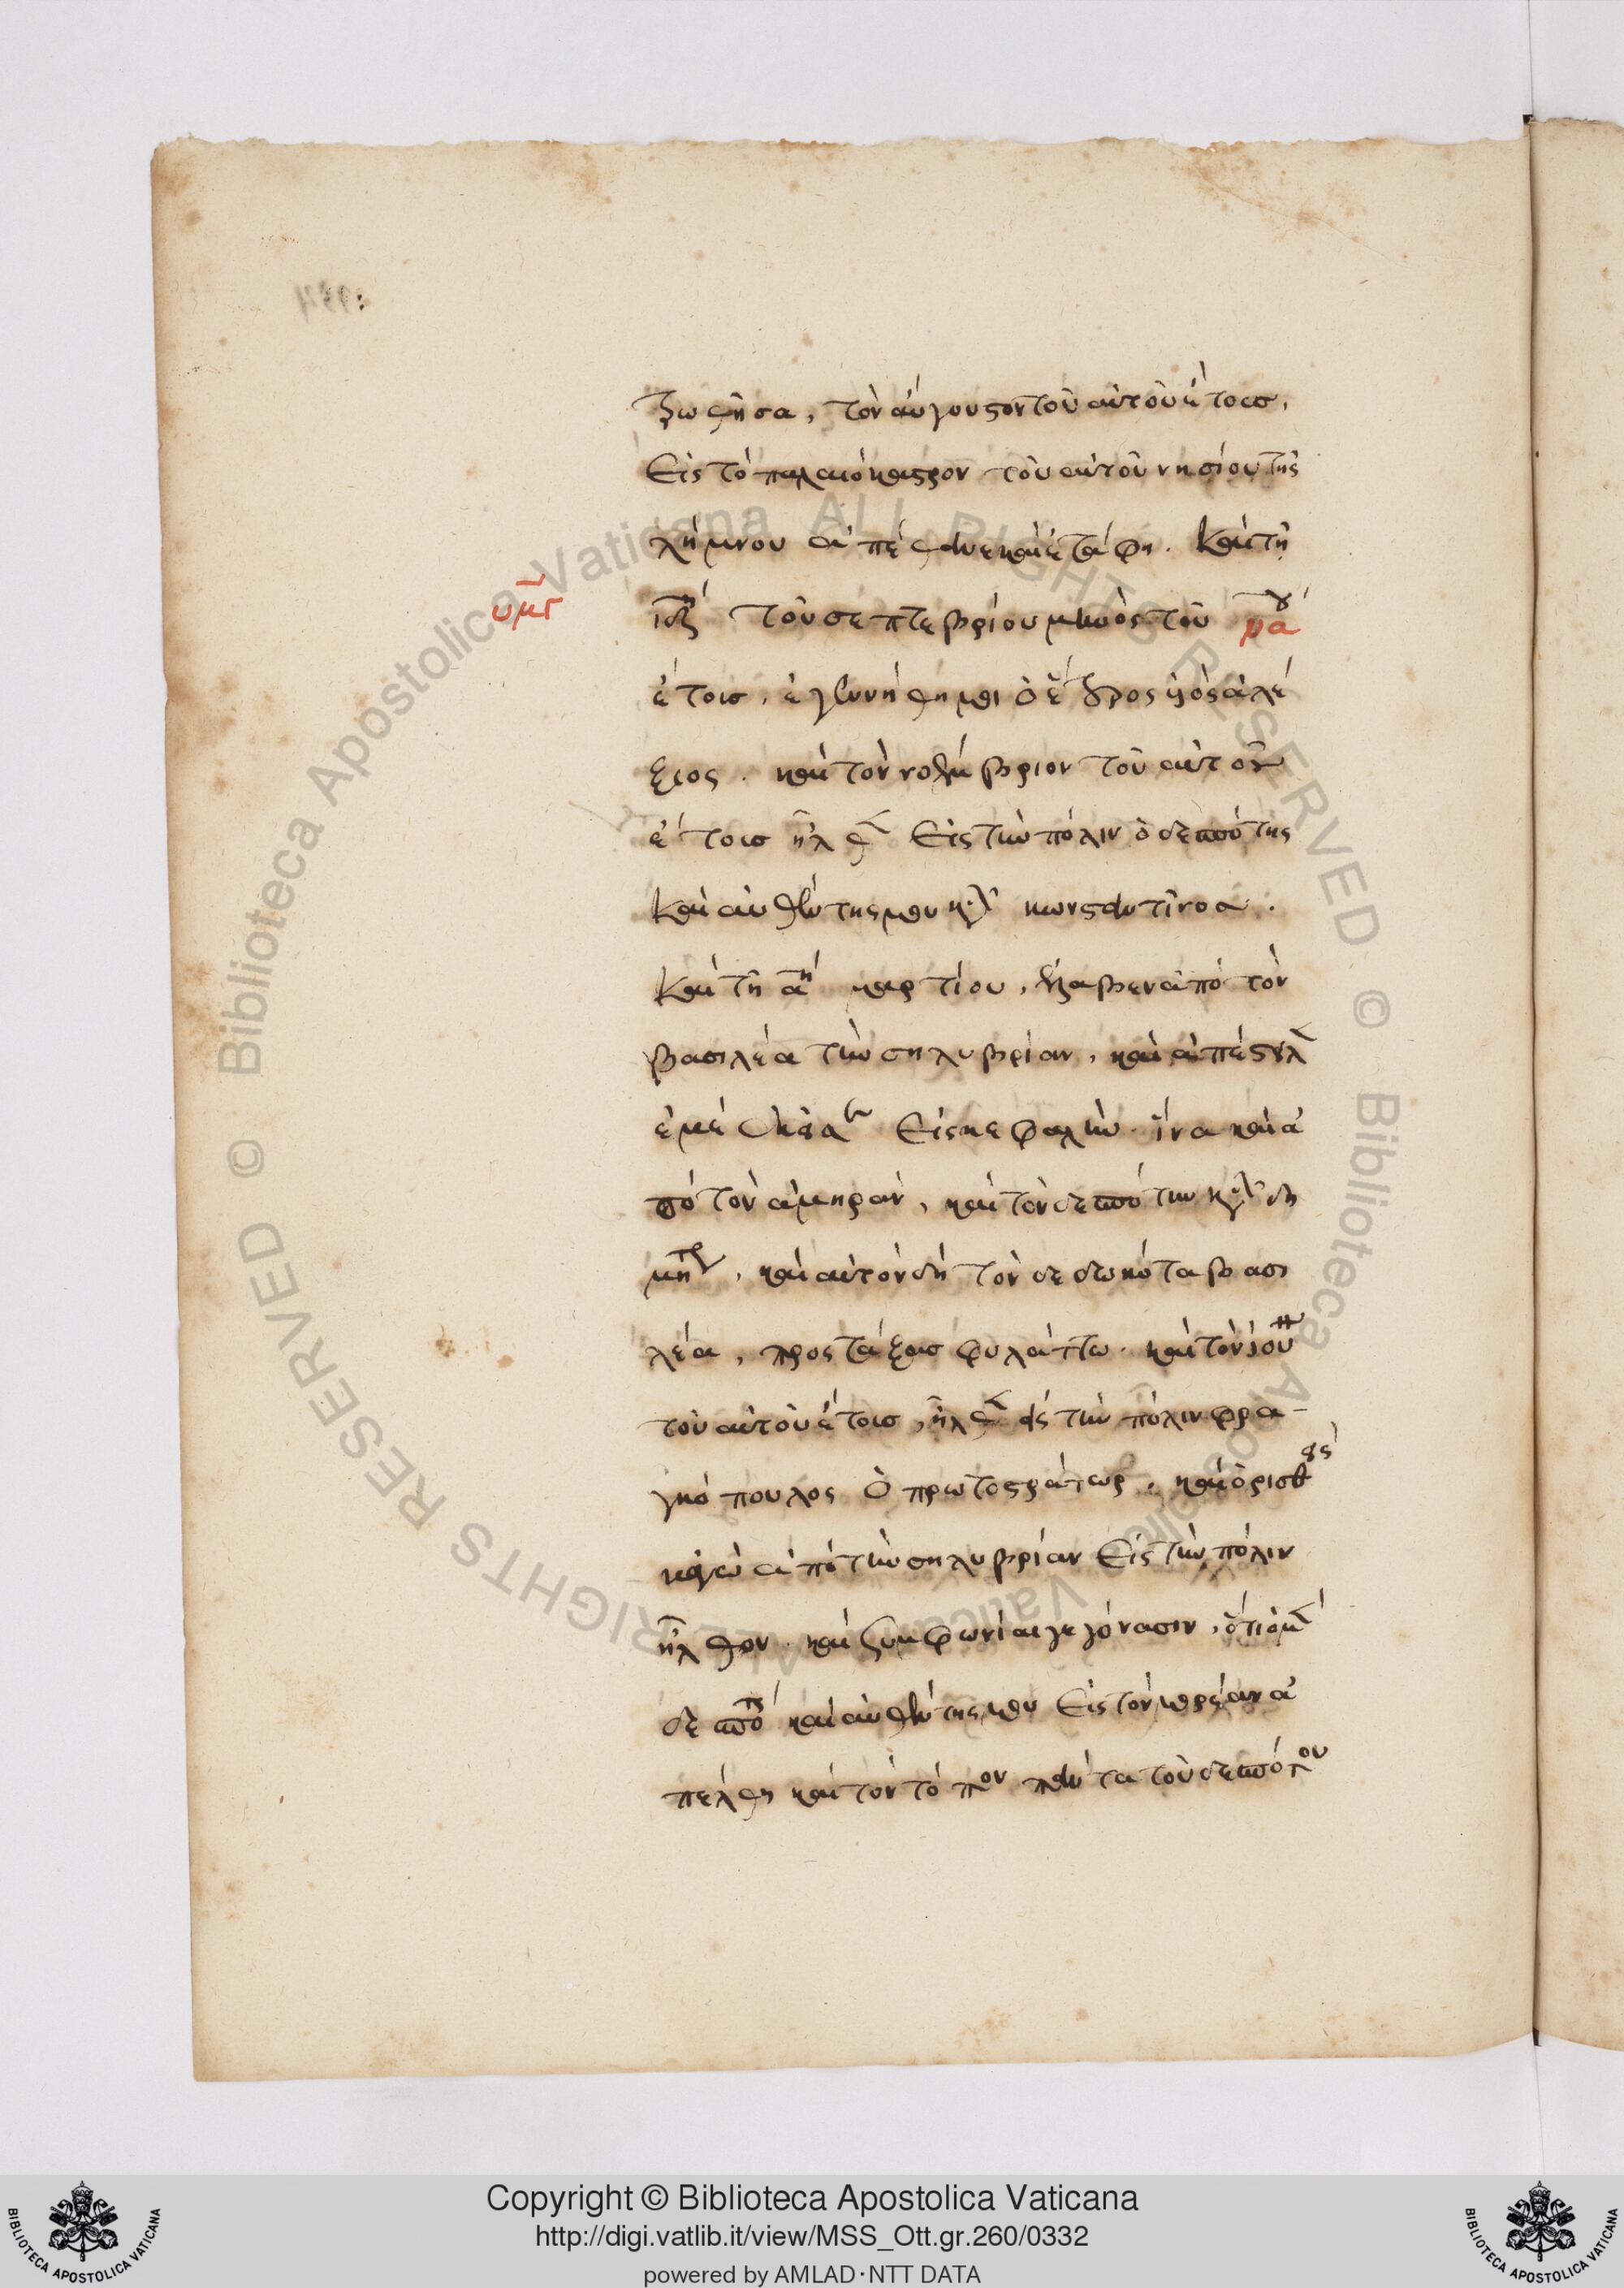 ζωθῆσα, τὸν αὔγουστον τοῦ αὐτοῦ ἔτους,
Εἰς τὸ παλαιόκαστρον τοῦ αὐτοῦ νησίου τῆς
λήμνου ἀπέθανε καὶ ἐτάφη. Καὶ τῆ
υμγ
τοῦ σεπτεβρίου μηνὸς τοῦ
ἔτους, ἐγεννήθη μοι ὁ ἕτερος υἱὸς ἀλέ
ξιος. καὶ τὸν νοέμβριον τοῦ αὐτοῦ
ἔτους ἦλθ Εἰς τὴν πόλιν ὁ δεσπότης
Καὶ αὐθέντης μου κὺρ κωνσταντῖνος.
Καὶ τῆ αη μαρτίου, ἔλαβεν ἀπὸ τὸν
βασιλέα τὴν σηλυβρίαν, καὶ ἀπέστειλ
ἐμὲ Εἰς κεφαλήν. ἵνα καὶ ἀ
πὸ τὸν ἀμηρᾶν, καὶ τὸν δεσπότην κὺρ δη
μήτρ, καὶ αὐτὸν δὴ τὸν δεδωκότα βασι
λέα, προστάξας φυλάττω. καὶ τὸν ἰουν
τοῦ αὐτοῦ ἔτους, ἦλθ εἰς τὴν πόλιν φρα-
γκόπουλος Ὁ πρωτοστράτωρ. καὶ ὁρισθεὶς
κἀγὼ ἀπὸ τὴν σηλυβρίαν Εἰς τὴν πόλιν
ἦλθον. καὶ ξυμφωνίαι γεγόνασιν, ὅτι ὁ μὲν
δεσπότης καὶ αὐθέντης μου Εἰς τὸν μορέαν ἀ
πέλθη καὶ τὸν τόπον πάντα τοῦ δεσπότου
Copyright © Biblioteca Apostolica Vaticana
http://digi.vatlib.it/view/MSS_Ott.gr.260/0332
powered by AMLAD·NTT DATA
BIBLIOTECA APOSTOLICA VATICANA
BIBLIOTECA APOSTOLICA VATICANA
© Biblioteca Apostolica Vaticana ALL RIGHTS RESERVED
© Biblioteca Apostolica Vaticana ALL RIGHTS RESERVED